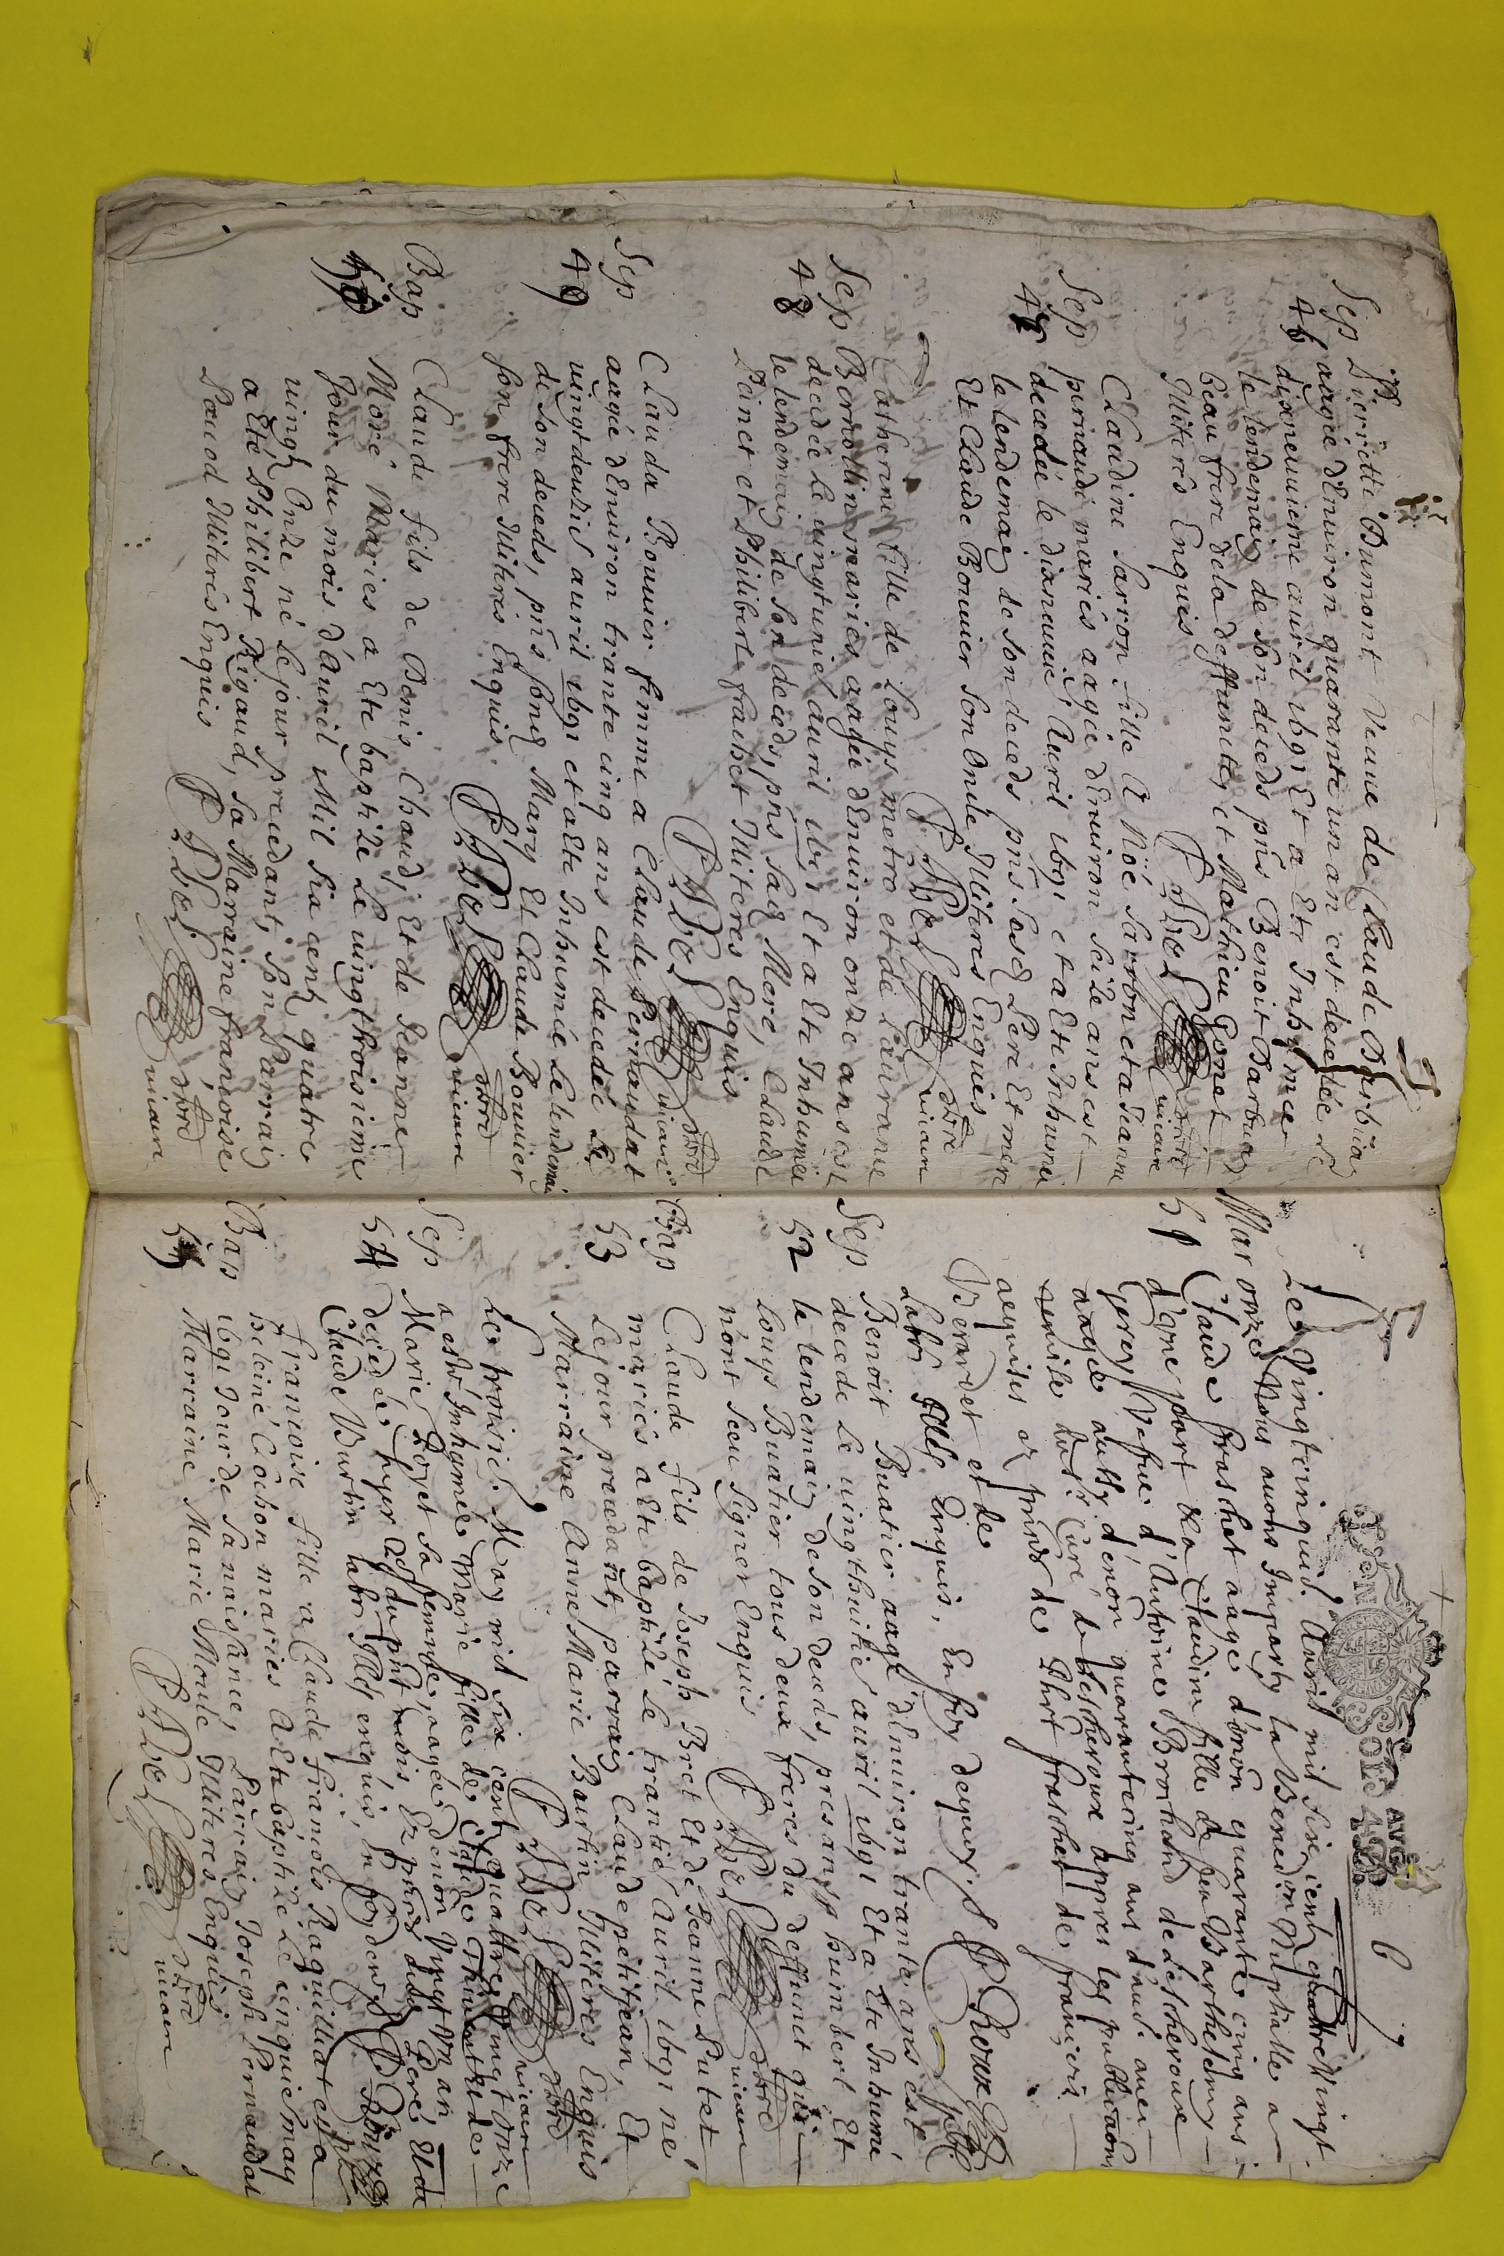 Sep
46
Pierrette Dumont Veuve de Claude Barbery
aagée d'Environ quarante un an est decedée le
dixneuvieme auril 1691 Et a Ete Inhumee
le lendemain de son deceds pñs Benoit Barbery
beau frere de la deffuncte, et Mathieu Gonet
Illiteres Enquis
vicaire
Sep
47
Claudine Sarron fille A Noé Sarron et a Jeanne
perraud mariés aagée d'Environ seize ans est
decedée le dixneuvie. Auril 1691 et a Ete Inhumée
le lendemain de son deceds pñs Sesd. Pere Et mere
Et Claude Bouvier son Oncle Illiteres Enquis
vicaire
Sep
48
Catherine fille de Louys metro et de Laurance
Bernollin mariés aagée d'Environ onze ans est
decedée le uingtunie. auril 1691 Et a Ete Inhumée
le lendemain de son deceds, pñs Sad. Mere, Claude
Poinet et Philibert fraichet Illiteres Enquis
vicaire
Sep
49
Clauda Bouvier femme a Claude Pernaudat
aagée d'Environ trante cinq ans est decedée le
uingtdeuzie. auril 1691 et a Ete Inhumée le lendemain
de son deceds, pñs sond. Mary Et Claude Bouvier
son frere Illiteres Enquis.
vicaire
Bap
50
Claude fils de Denis Chaud, Et de Jeanne
Moré Mariés a Ete baptizé le uingtroisieme
Jour du mois d'Auril Mil Six cent quatre
uingt Onze né le jour precedant, son Parrain
a Eté Philibert Rigaud, sa Marraine francoise
Paucod Illiterés Enquis
vicaire
6
AVG
Mar
51
Le Vingtcinquie. Auril mil Six cent quatre Vingt
onze Nous auons Imparty la Benedon Nuptialle a
Claude fraschet aage d'enon quarante cinq ans
d'une part & a Claudine fille de feu Barthelemy
Gerey Vefue d'Antoine Bronchand de Letcheroux
aagée aussy d'enon quarantecinq ans d'aut. auec
remise du Sr. Curé de Letcheroux appres les publicaons
requises ez pñces de Phrt fraschet de françoise
Berardet et de
Labr Illés Enquis. En foy dequoy. J
Roux
Sep
52
Benoit Buatier aagé d'Environ trante ans est
decede le uingthuitie. auril 1691 Et a Ete Inhumé
le lendemain de son deceds, presans humbert Et
Louys Buatier tous deux freres du deffunct qui
n'ont sceu signer Enquis
vicaire
Bap
53
Claude fils de Joseph Bret Et de Jeanne Putet
mariés a Ete baptizé le trantie. Auril 1691 né
le jour precedant, parrain Claude petitjean, Et
Marraine Anne Marie Bourtin Illiteres Enquis
vicaire
Sep
54
Le troisie. May mil six cent quattre Vingt onze
a esté Inhumée Marie fille de Claude
Marie Royet Sa femme, aagée denon Vingt Un an
decedée hyer du pñt mois Ez pñces dud. Peré, Et de
Claude Burtin labr Illés enquis, En foy dequoy J
Roux
Bap
55
Francoise fille a Claude francois Raquillat et a
heleine Cochon mariés A Ete baptizée le cinquie. may
1691 Jour de sa naissance, Parrain Joseph Pernaudat
Marraine Marie Moule Illiteres Enquis
vicaire